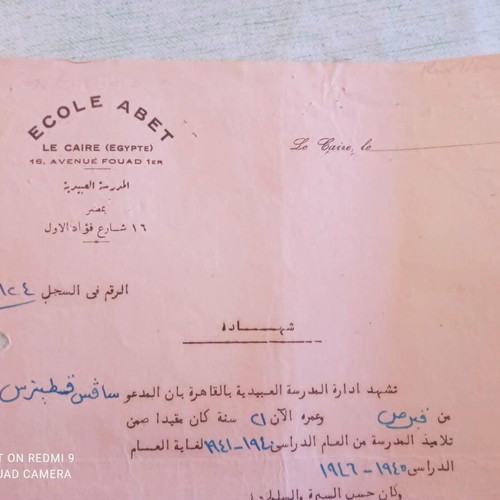 ECOLE ABET
LE CAIRE (EGYPTE)
16, AVENUE FOUAD 1ER
المدرسة العبيدية
بمصر
١٦ شارع فؤاد الاول
Le Caire, le
الرقم فى السجل ١٢٤
شهادة
تشهد ادارة المدرسة العبيدية بالقاهرة بان المدعو
من قبرص وعمره الآن ٢١ سنة كان مقيدا ضمن
تلاميذ المدرسة من العام الدراسى ١٩٤٠-١٩٤١ لغاية العام
الدراسى ١٩٤٥-١٩٤٦
كان حسن السيرة والسلوك
T ON REDMI 9
UAD CAMERA